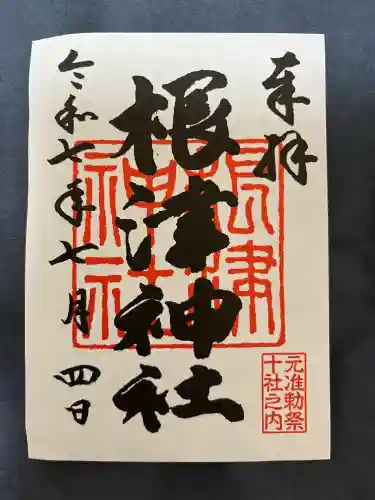 奉拝
根津神社
根津
神社
元准勅祭
十社之内
令和七年七月四日